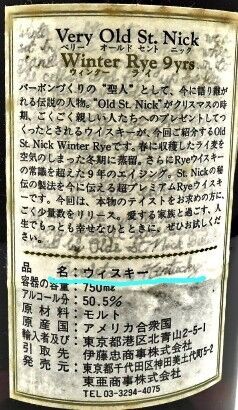 Very Old St. Nick
ベリー オールド セント ニック
Winter Rye 9yrs
ウィンター ライ
バーボンづくりの "聖人" として、今に語り継が
れる伝説の人物。"Old St. Nick"がクリスマスの時
期、ごくごく親しい人たちへのプレゼントしてつ
くったとされるウイスキーが、今回ご紹介するOld
St. Nick Winter Ryeです。春に収穫したライ麦を
空気のしまった冬期に蒸留。さらにRyeウイスキー
の常識を超えた9年のエイジング。St. Nickの秘
伝の製法を今に伝える超プレミアムRyeウイスキー
です。今回は、本物のテイストをお求めの方に、
ごく少量数をリリース。愛する家族と過ごす、人
生でもっとも幸せなひとときに。ぜひお試しくだ
さい。
品名:ウィスキー
容器の容量:750ml
アルコール分:50.5%
原材料:モルト
原産国:アメリカ合衆国
輸入者及び:東京都港区北青山2-5-1
引取先 伊藤忠商事株式会社
発売元:東京都千代田区神田美土代町5-2
東亜商事株式会社
TEL 03-3294-4075